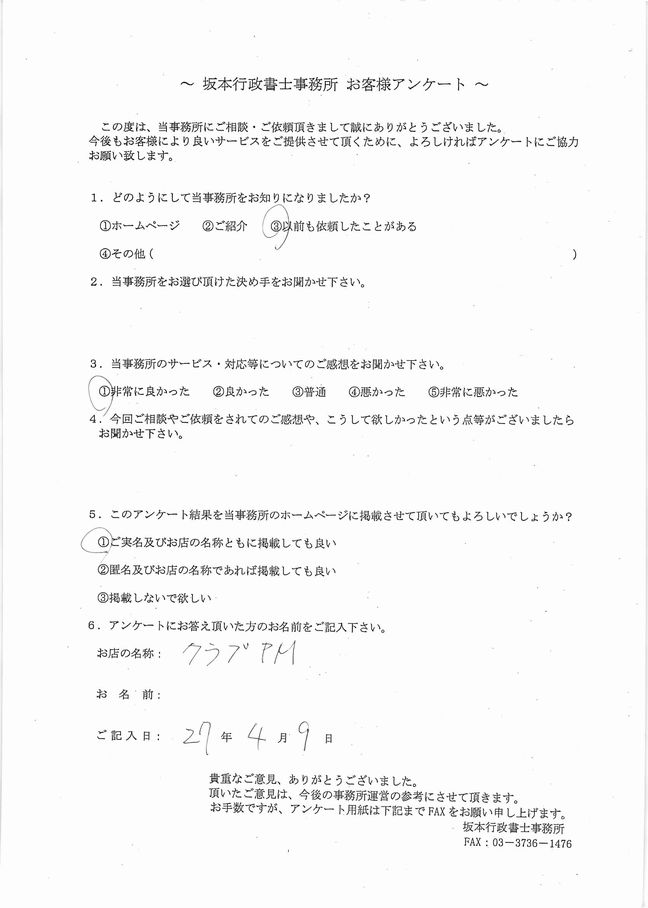 ～ 坂本行政書士事務所 お客様アンケート ～
この度は、当事務所にご相談・ご依頼頂きまして誠にありがとうございました。
今後もお客様により良いサービスをご提供させて頂くために、よろしければアンケートにご協力
お願い致します。
1．どのようにして当事務所をお知りになりましたか？
①ホームページ ②ご紹介 ③以前も依頼したことがある
④その他 ( )
2．当事務所をお選び頂けた決め手をお聞かせ下さい。
3．当事務所のサービス・対応等についてのご感想をお聞かせ下さい。
①非常に良かった ②良かった ③普通 ④悪かった ⑤非常に悪かった
4．今回ご相談やご依頼をされてのご感想や、こうして欲しかったという点等がございましたら
お聞かせ下さい。
5．このアンケート結果を当事務所のホームページに掲載させて頂いてもよろしいでしょうか？
①ご実名及びお店の名称ともに掲載しても良い
②匿名及びお店の名称であれば掲載しても良い
③掲載しないで欲しい
6．アンケートにお答え頂いた方のお名前をご記入下さい。
お店の名称： クラブ PM
お 名 前：
ご記入日： 27 年 4 月 9 日
貴重なご意見、ありがとうございました。
頂いたご意見は、今後の事務所運営の参考にさせて頂きます。
お手数ですが、アンケート用紙は下記まで FAX をお願い申し上げます。
坂本行政書士事務所
FAX：03－3736－1476